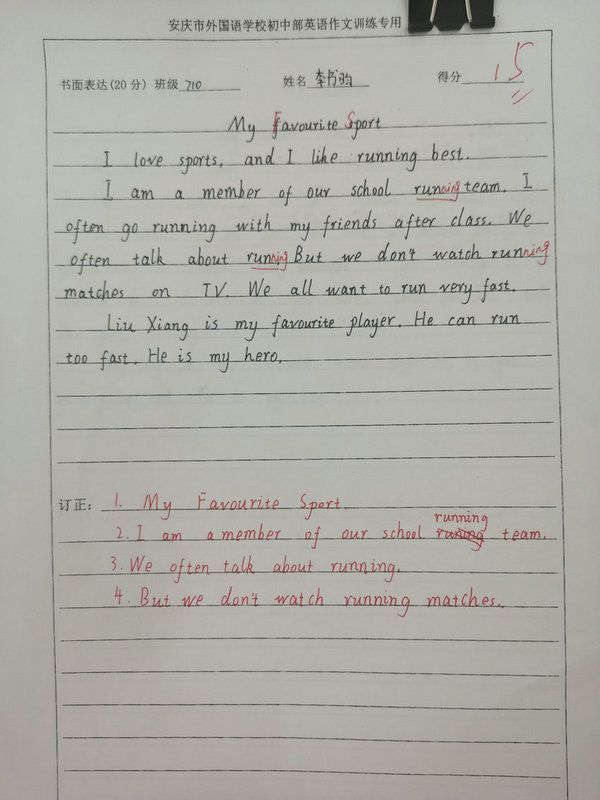 安庆市外国语学校初中部英语作文训练专用
书面表达(20分) 班级 710 姓名 李书昀 得分 15
My Favourite Sport
I love sports, and I like running best.
I am a member of our school running team. I
often go running with my friends after class. We
often talk about running But we don't watch running
matches on TV. We all want to run very fast.
Liu Xiang is my favourite player. He can run
too fast. He is my hero.
订正: 1. My Favourite Sport.
running
2. I am a member of our school runing team.
3. We often talk about running.
4. But we don't watch running matches.